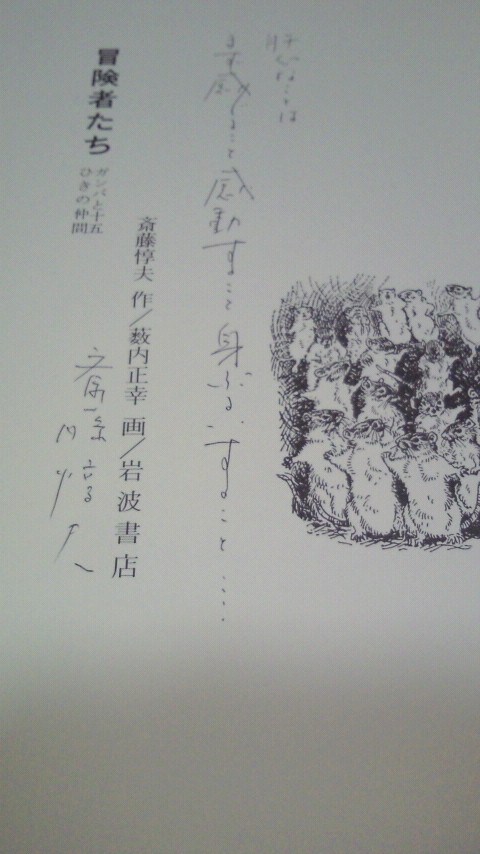 肝心なことは
まず感じること 感動すること 身ぶるいすること....
斎藤惇夫 作／薮内正幸 画／岩波書店
冒険者たち
ガンバと十五
ひきの仲間
斎藤惇夫